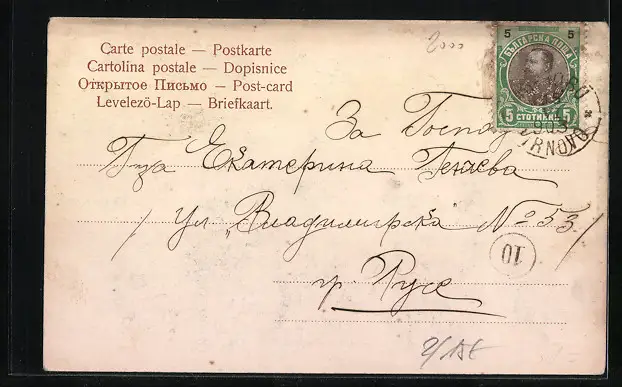 Carte postale — Postkarte
Cartolina postale — Dopisnice
Открытое Письмо — Post-card
Levelező-Lap — Briefkaart.
2000
5 5
БЪЛГАРСКА ПОЩА
5 СТОТИНКИ 5
За Госпо
Гца Екатерина
/ ул. „Владимирска“ № 53 /
10
гр. Русе